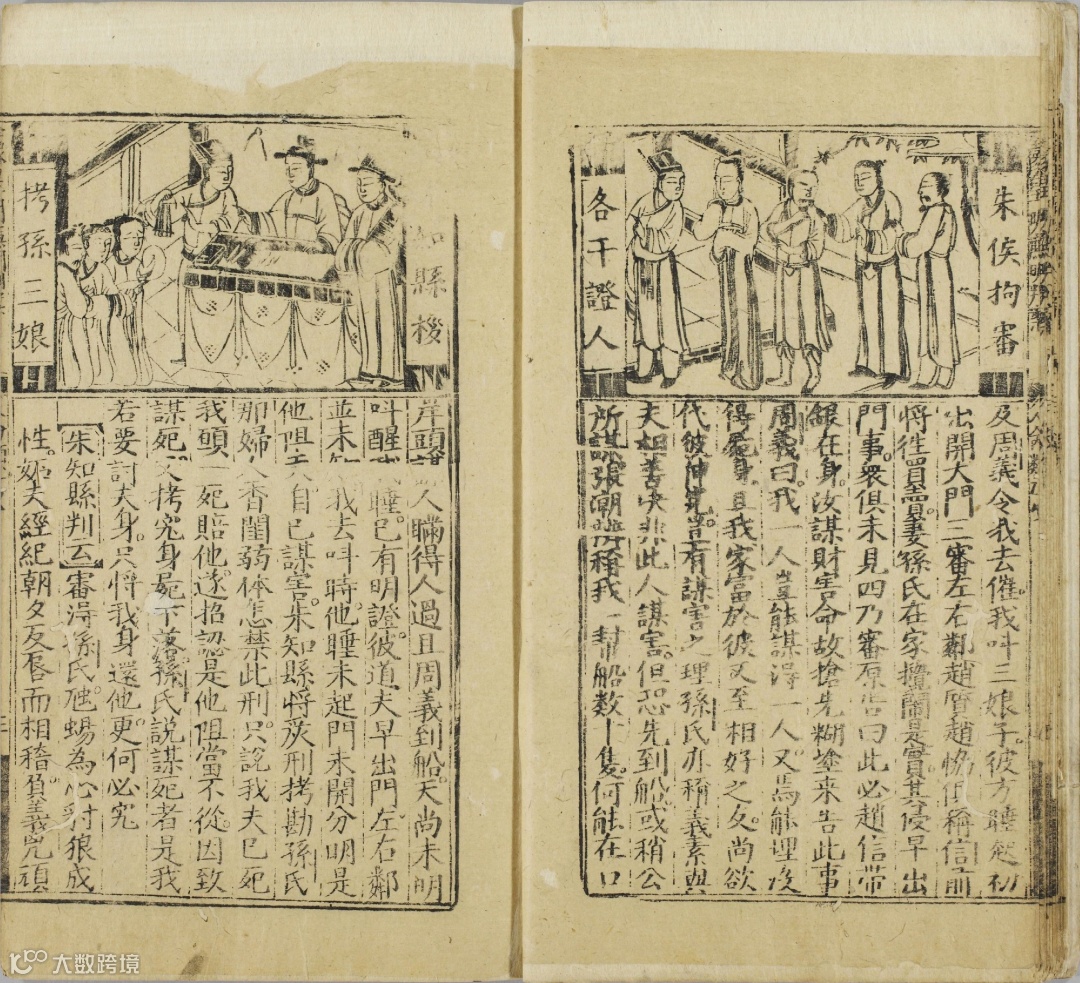 朱侯拘審
各干證人
及周義令我去催我叫三娘子彼方睡起初
出開大門三審左右鄰趙質趙協俱稱信前
將往買賣妻孫氏在家攪鬧是實其侵早出
門事衆俱未見四乃審原告曰此必趙信帶
銀在身汝謀財害命故搶先糊塗來告此事
周義曰我一人豈能謀得一人又焉能埋沒
得屍身且我家富於彼又至相好之友尚欲
代彼伸冤豈有謀害之理孫氏亦稱義素與
夫相善決非此人謀害但恐先到船或稍公
所謀張潮辨稱我一幫船数十隻何能在口
縣梭
拷孫三娘
岸頭謀人瞞得人過且周義到船天尚未明
叫醒睡已有明證彼道夫早出門左右鄰
並未我去叫時他睡未起門未開分明是
他阻自已謀害朱知縣將嚴刑拷勘孫氏
那婦人香閨弱体怎禁此刑只說我夫已死
我願一死賠他遂招認是他阻當不從因致
謀死又拷究身屍下落孫氏説謀死者是我
若要討夫身只將我身還他更何必究
朱知縣判云審得孫氏虺蜴為心豺狼成
性妬夫經紀朝夕反唇而相稽負義兇頑
大数跨境